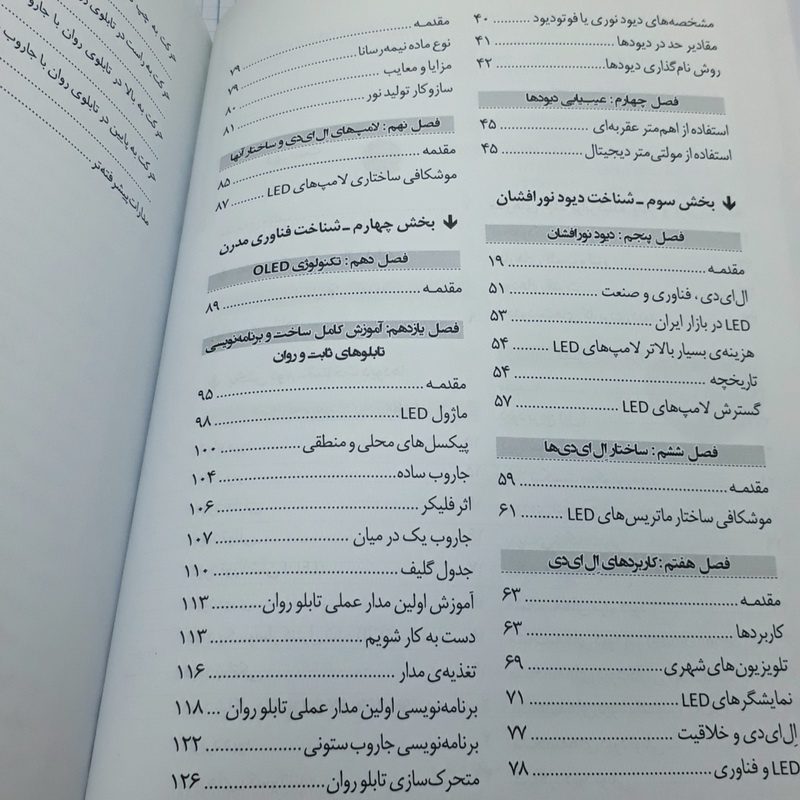 مشخصه‌های دیود نوری یا فوتودیود ........ ۴۰
مقادیر حد در دیودها ........ ۴۱
روش نام‌گذاری دیودها ........ ۴۲
فصل چهارم: عیب‌یابی دیودها
استفاده از اهم‌متر عقربه‌ای ........ ۴۵
استفاده از مولتی‌متر دیجیتال ........ ۴۵
بخش سوم ـ شناخت دیود نورافشان
فصل پنجم: دیود نورافشان
مقدمـه ........ ۱۹
ال‌ای‌دی، فناوری و صنعت ........ ۵۱
LED در بازار ایران ........ ۵۳
هزینه‌ی بسیار بالاتر لامپ‌های LED ........ ۵۴
تاریخچه ........ ۵۴
گسترش لامپ‌های LED ........ ۵۷
فصل ششم: ساختار اِل‌ای‌دی‌ها
مقدمـه ........ ۵۹
موشکافی ساختار ماتریس‌های LED ........ ۶۱
فصل هفتم: کاربردهای اِل‌ای‌دی
مقدمـه ........ ۶۳
کاربردها ........ ۶۳
تلویزیون‌های شهری ........ ۶۹
نمایشگرهای LED ........ ۷۱
اِل‌ای‌دی و خلاقیت ........ ۷۷
LED و فناوری ........ ۷۸
مقدمـه ........ ۷۹
نوع ماده نیمه‌رسانا ........ ۷۹
مزایا و معایب ........ ۸۰
سازوکار تولید نور ........ ۸۱
فصل نهم: لامپ‌های اِل‌ای‌دی و ساختار آنها
مقدمه ........ ۸۵
موشکافی ساختاری لامپ‌های LED ........ ۸۷
بخش چهارم ـ شناخت فناوری مدرن
فصل دهم: تکنولوژی OLED
مقدمـه ........ ۸۹
فصل یازدهم: آموزش کامل ساخت و برنامه‌نویسی
تابلوهای ثابت و روان
مقدمـه ........ ۹۵
ماژول LED ........ ۹۸
پیکسل‌های محلی و منطقی ........ ۱۰۰
جاروب ساده ........ ۱۰۴
اثر فلیکر ........ ۱۰۶
جاروب یک در میان ........ ۱۰۷
جدول گلیف ........ ۱۱۰
آموزش اولین مدار عملی تابلو روان ........ ۱۱۳
دست به کار شویم ........ ۱۱۳
تغذیه‌ی مدار ........ ۱۱۶
برنامه‌نویسی اولین مدار عملی تابلو روان ... ۱۱۸
برنامه‌نویسی جاروب ستونی ........ ۱۲۲
متحرک‌سازی تابلو روان ........ ۱۲۶
حرکت به چپ
حرکت به راست در تابلوی روان با جاروب
حرکت به بالا در تابلوی روان با جاروب
حرکت به پایین در تابلوی روان با جاروب
مدارات پیشرفته‌تر